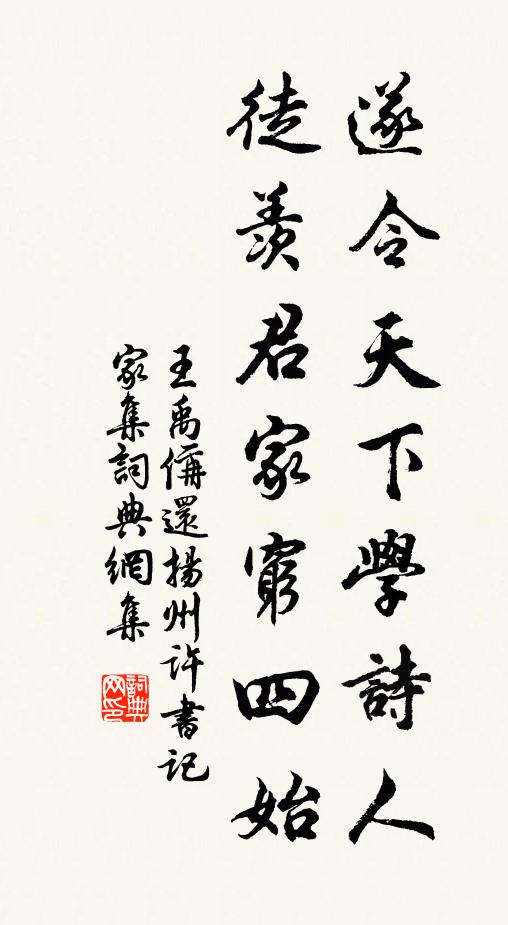 遂令天下學詩人
徒羨君家窮四始
王禹偁還揚州許書記
家集詞典網集
詞典
网印